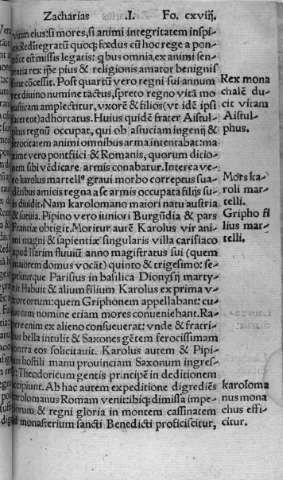 Zacharias .I. Fo. cxviij.
vitam eius: si mores, si animi integritatem inspi-
Reditegratū quoq; fœdus cū hoc rege a pon-
est missis legatis: q bus omnia, ex animi sen-
rex pius & religionis amator benignis
cōcessit. Post quartū vero regni sui annum
diuino numine tactus, spreto regno vitā mo
amplectitur, vxorē & filios (vt idē ipsi
adhortatus. Huius quidē frater Aistul-
regnū occupat, qui ob astuciam ingenij &
animi omnibus arma intentabat: ma
vero pontifici & Romanis, quorum ditio-
sibi vēdicare armis conabatur. Interea ve-
karolus martell9 graui morbo correptus sua-
amicis regna a se armis occupata filijs su-
diuidit. Nam karolomano maiori natu austria
Pipino vero iuniori Burgūdia & pars
obtigit. Moritur autē Karolus vir ani-
magni & sapientiæ singularis villa carisiaco
flium anno magistratus sui (quem
domus vocāt) quinto & trigesimo: se-
Parisius in basilica Dionysij marty-
Habuit & alium filium Karolus ex prima v
quem Griphonem appellabant: cu-
nomine etiam mores conueniebant. Ra-
enim ex alieno consueuerat: vnde & fratri-
bella intulit & Saxones gētem ferocissimam
eos solicitauit. Karolus autem & Pipi-
hostili manu prouinciam Saxonum ingres-
Theodoricum gentis principē in deditionem
Ab hac autem expeditione digrediēs
Romam venit: ibiq; dimissa impe-
& regni gloria in montem cassinatem
monasterium sancti Benedicti proficiscitur,
Rex mona
chalē du-
cit vitam
Aistul
phus.
Mors ka-
roli mar-
telli.
Gripho fi
lius mar-
telli.
karoloma
nus mona
chus effi-
citur.